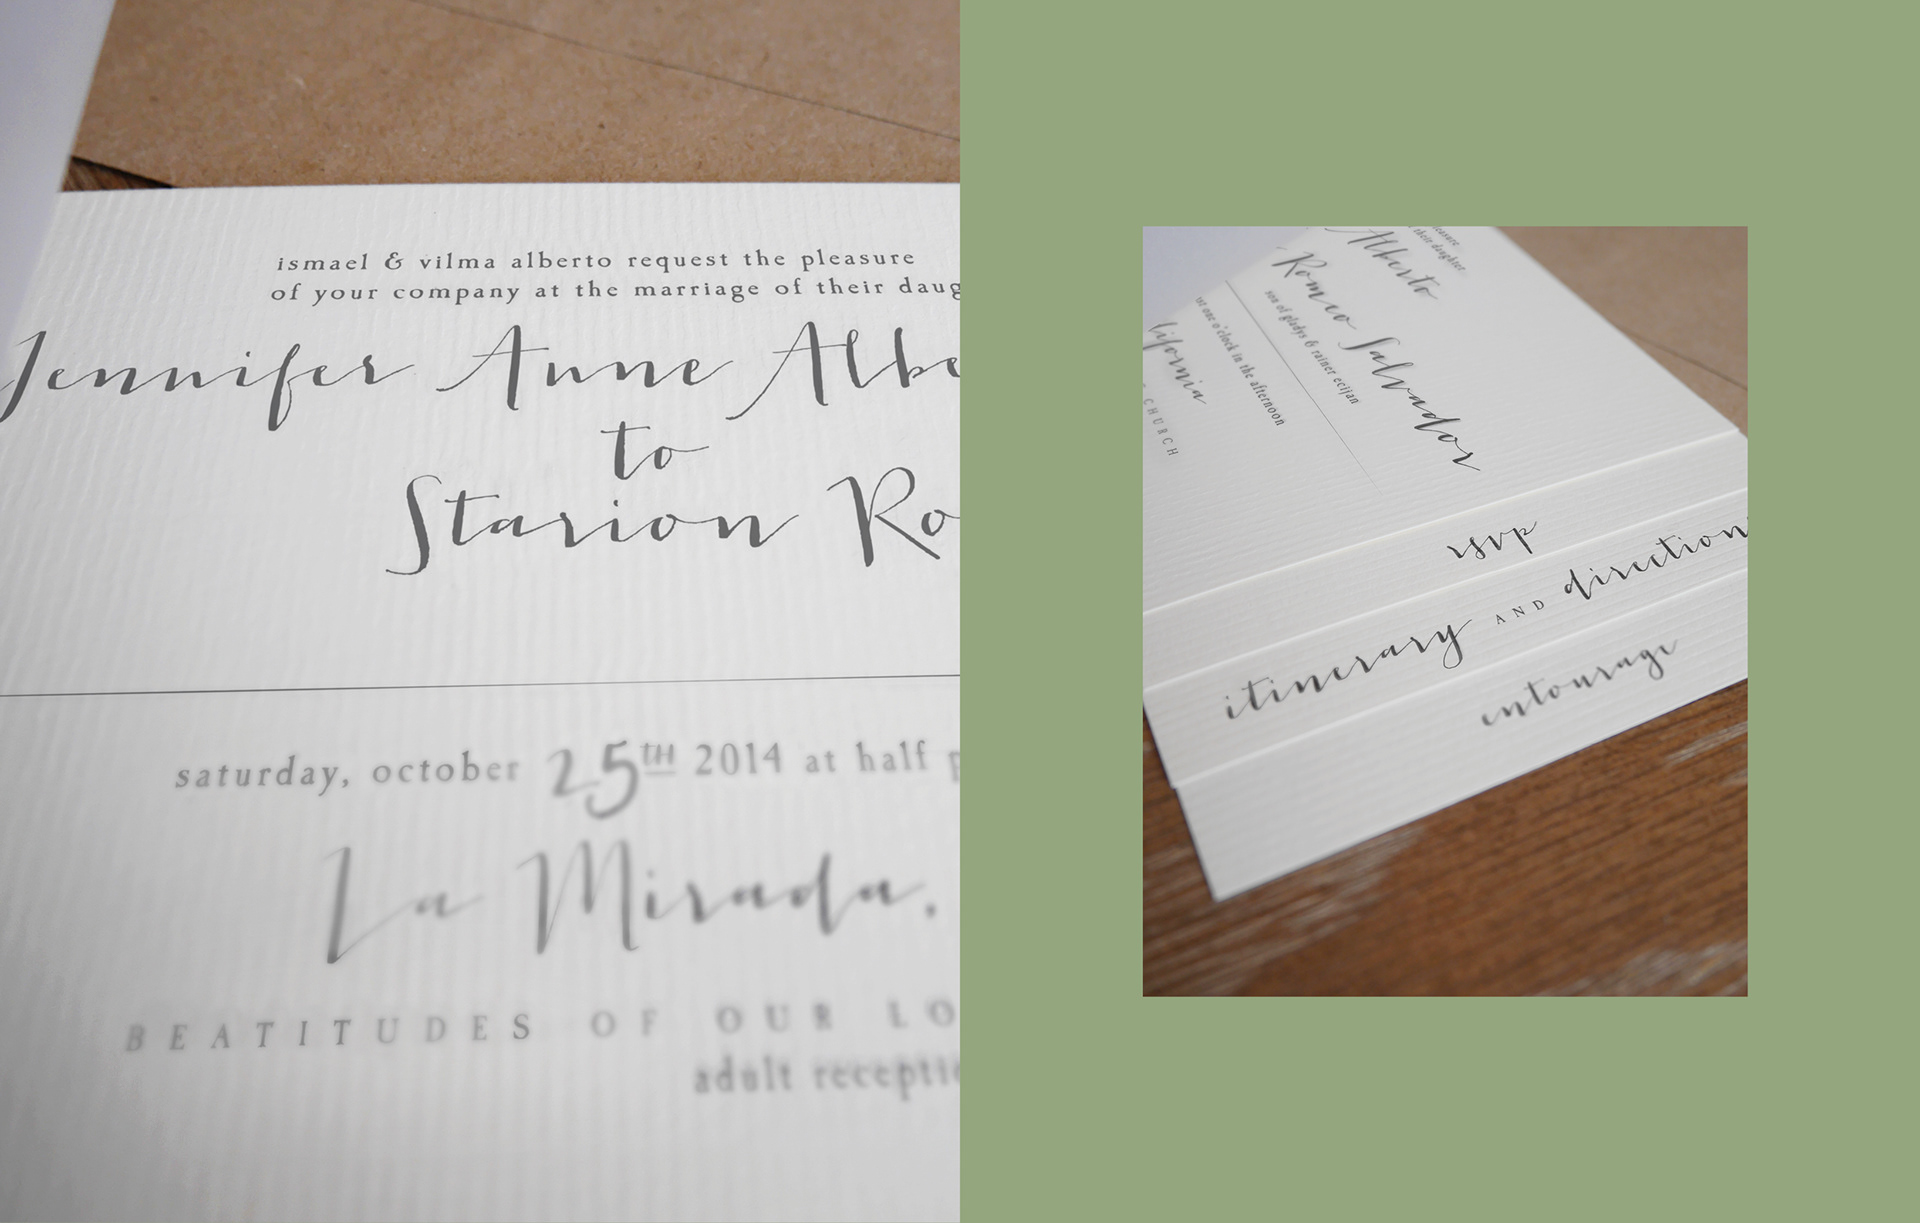 ismael & vilma alberto request the pleasure
of your company at the marriage of their daug
Jennifer Anne Albe
to
Starion Ro
saturday, october 25TH 2014 at half p
La Mirada,
BEATITUDES OF OUR LO
adult recepti
easure
their daughter
Alberto
Romeo Salvador
son of gladys & rainer ecijan
one o'clock in the afternoon
lifornia
CHURCH
rsvp
itinerary AND direction
entourage